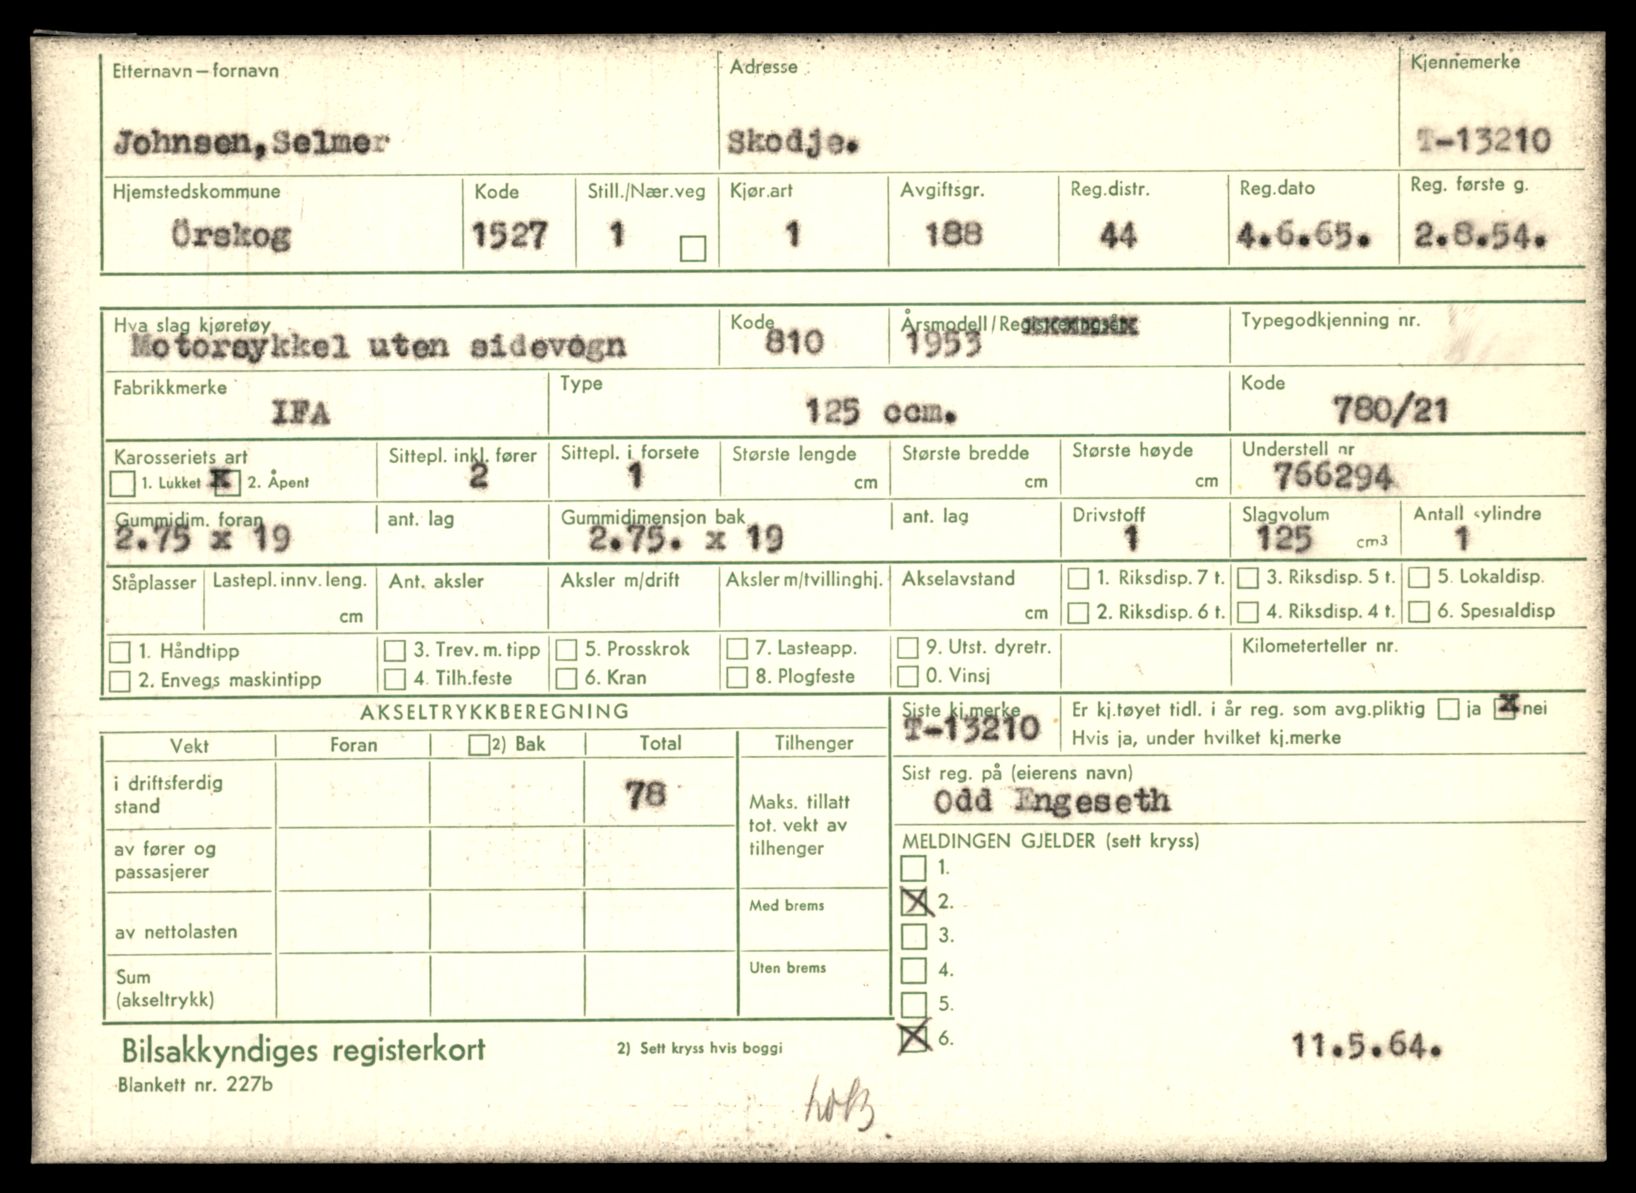 Etternavn – fornavn Adresse Kjennemerke
Johnsen, Selmer Skodje. T-13210
Hjemstedskommune Kode Still./Nær.veg Kjør.art Avgiftsgr. Reg.distr. Reg.dato Reg. første g.
Örskog 1527 1 1 188 44 4.6.65. 2.8.54.
Hva slag kjøretøy Kode Årsmodell/Registreringsår Typegodkjenning nr.
Motorsykkel uten sidevogn 810 1953
Fabrikkmerke Type Kode
IFA 125 ccm. 780/21
Karosseriets art Sittepl. inkl. fører Sittepl. i forsete Største lengde Største bredde Største høyde Understell nr
1. Lukket X 2. Åpent 2 1 cm cm cm 766294
Gummidim. foran ant. lag Gummidimensjon bak ant. lag Drivstoff Slagvolum Antall sylindre
2.75 x 19 2.75. x 19 1 125 cm3 1
Ståplasser Lastepl. innv. leng. Ant. aksler Aksler m/drift Aksler m/tvillinghj. Akselavstand 1. Riksdisp. 7 t. 3. Riksdisp. 5 t. 5. Lokaldisp.
cm cm 2. Riksdisp. 6 t. 4. Riksdisp. 4 t. 6. Spesialdisp
1. Håndtipp 3. Trev. m. tipp 5. Prosskrok 7. Lasteapp. 9. Utst. dyretr. Kilometerteller nr.
2. Envegs maskintipp 4. Tilh.feste 6. Kran 8. Plogfeste 0. Vinsj
AKSELTRYKKBEREGNING Siste kj.merke Er kj.tøyet tidl. i år reg. som avg.pliktig ja X nei
T-13210 Hvis ja, under hvilket kj.merke
Vekt Foran 2) Bak Total Tilhenger
Sist reg. på (eierens navn)
i driftsferdig stand 78 Odd Engeseth
Maks. tillatt tot. vekt av tilhenger
MELDINGEN GJELDER (sett kryss)
av fører og passasjerer
1.
Med brems X 2.
av nettolasten 3.
Sum (akseltrykk) Uten brems 4.
5.
Bilsakkyndiges registerkort 2) Sett kryss hvis boggi X 6. 11.5.64.
Blankett nr. 227b